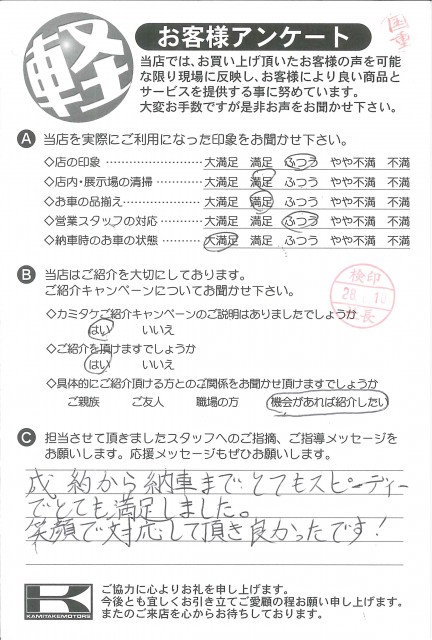 軽
お客様アンケート
国重
当店では、お買い上げ頂いたお客様の声を可能
な限り現場に反映し、お客様により良い商品と
サービスを提供する事に努めています。
大変お手数ですが是非お声をお聞かせ下さい。
A 当店を実際にご利用になった印象をお聞かせ下さい。
◇店の印象 ………………… 大満足 満足 ふつう やや不満 不満
◇店内・展示場の清掃 ………… 大満足 満足 ふつう やや不満 不満
◇お車の品揃え ……………… 大満足 満足 ふつう やや不満 不満
◇営業スタッフの対応 ………… 大満足 満足 ふつう やや不満 不満
◇納車時のお車の状態 ………… 大満足 満足 ふつう やや不満 不満
B 当店はご紹介を大切にしております。
ご紹介キャンペーンについてお聞かせ下さい。
検印
28 10
長
◇カミタケご紹介キャンペーンのご説明はありましたでしょうか
はい いいえ
◇ご紹介を頂けますでしょうか
はい いいえ
◇具体的にご紹介頂ける方とのご関係をお聞かせ頂けますでしょうか
ご親族 ご友人 職場の方 機会があれば紹介したい
C 担当させて頂きましたスタッフへのご指摘、ご指導メッセージを
お願いします。応援メッセージもぜひお願いします。
成約から納車までとてもスピーディー
でとても満足しました。
笑顔で対応して頂き良かったです!
K
KAMITAKEMOTORS
ご協力に心よりお礼を申し上げます。
今後とも宜しくお引き立てご愛顧の程お願い申し上げます。
またのご来店を心からお待ちしております。